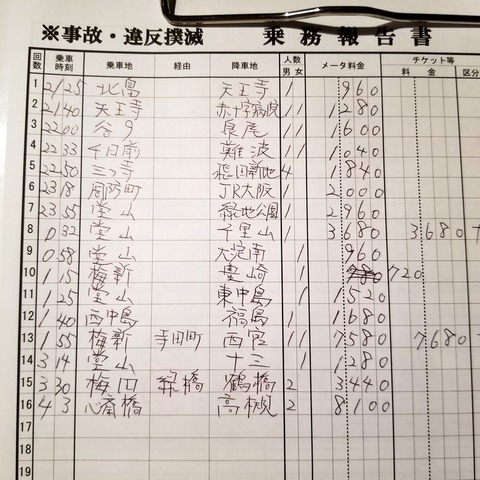 ※事故・違反撲滅 乗務報告書
回数 乗車時刻 乗車地 経由 降車地 人数 男 女 メータ料金 チケット等 料金 区分
1 21 25 北畠 天王寺 1 960
2 21 40 天王寺 赤十字病院 1 1 1280
3 22 00 谷9 泉尾 1 1 1600
4 22 33 千日前 難波 1 1 1040
5 22 50 三ッ寺 飛田新地 4 1840
6 23 18 周防町 JR大阪 1 2000
7 23 55 堂山 緑地公園 1 2960
8 0 32 堂山 千里山 1 3680 3680
9 0 58 堂山 大淀南 1 960
10 1 15 梅新 豊崎 1 720
11 1 25 堂山 東中島 1 1520
12 1 40 西中島 福島 1 1680
13 1 55 梅新 寺田町 西宮 1 1 7580 7680
14 3 14 堂山 十三 1 1280
15 3 30 梅田 橋 鶴橋 2 3440
16 4 3 心斎橋 高槻 2 8100
17
18
19